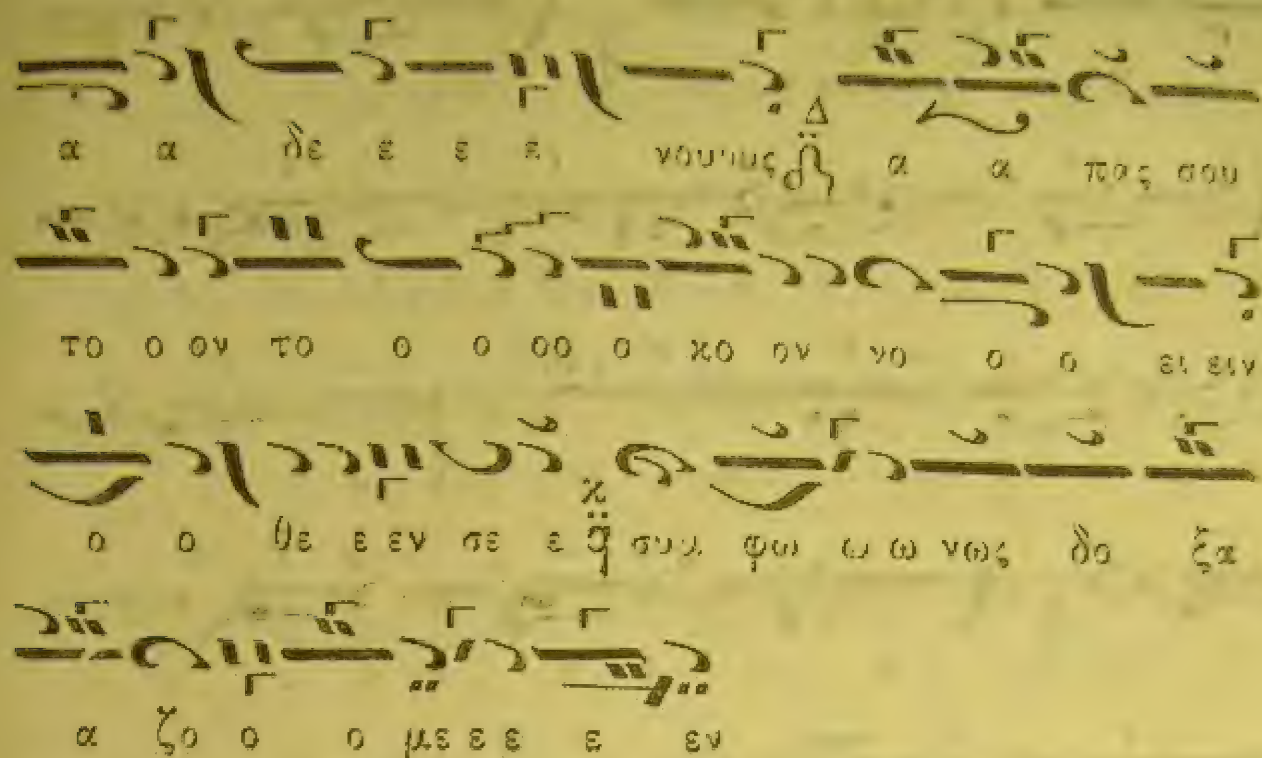 α α δε ε ε ε, νουτους Δ α α πας σου
το ο ον το ο ο οο ο κο ον νο ο ο ει ειν
ο ο θε ε εν σε ε συμ φω ω ω νως δο ξα
α ζο ο ο με ε ε ε εν